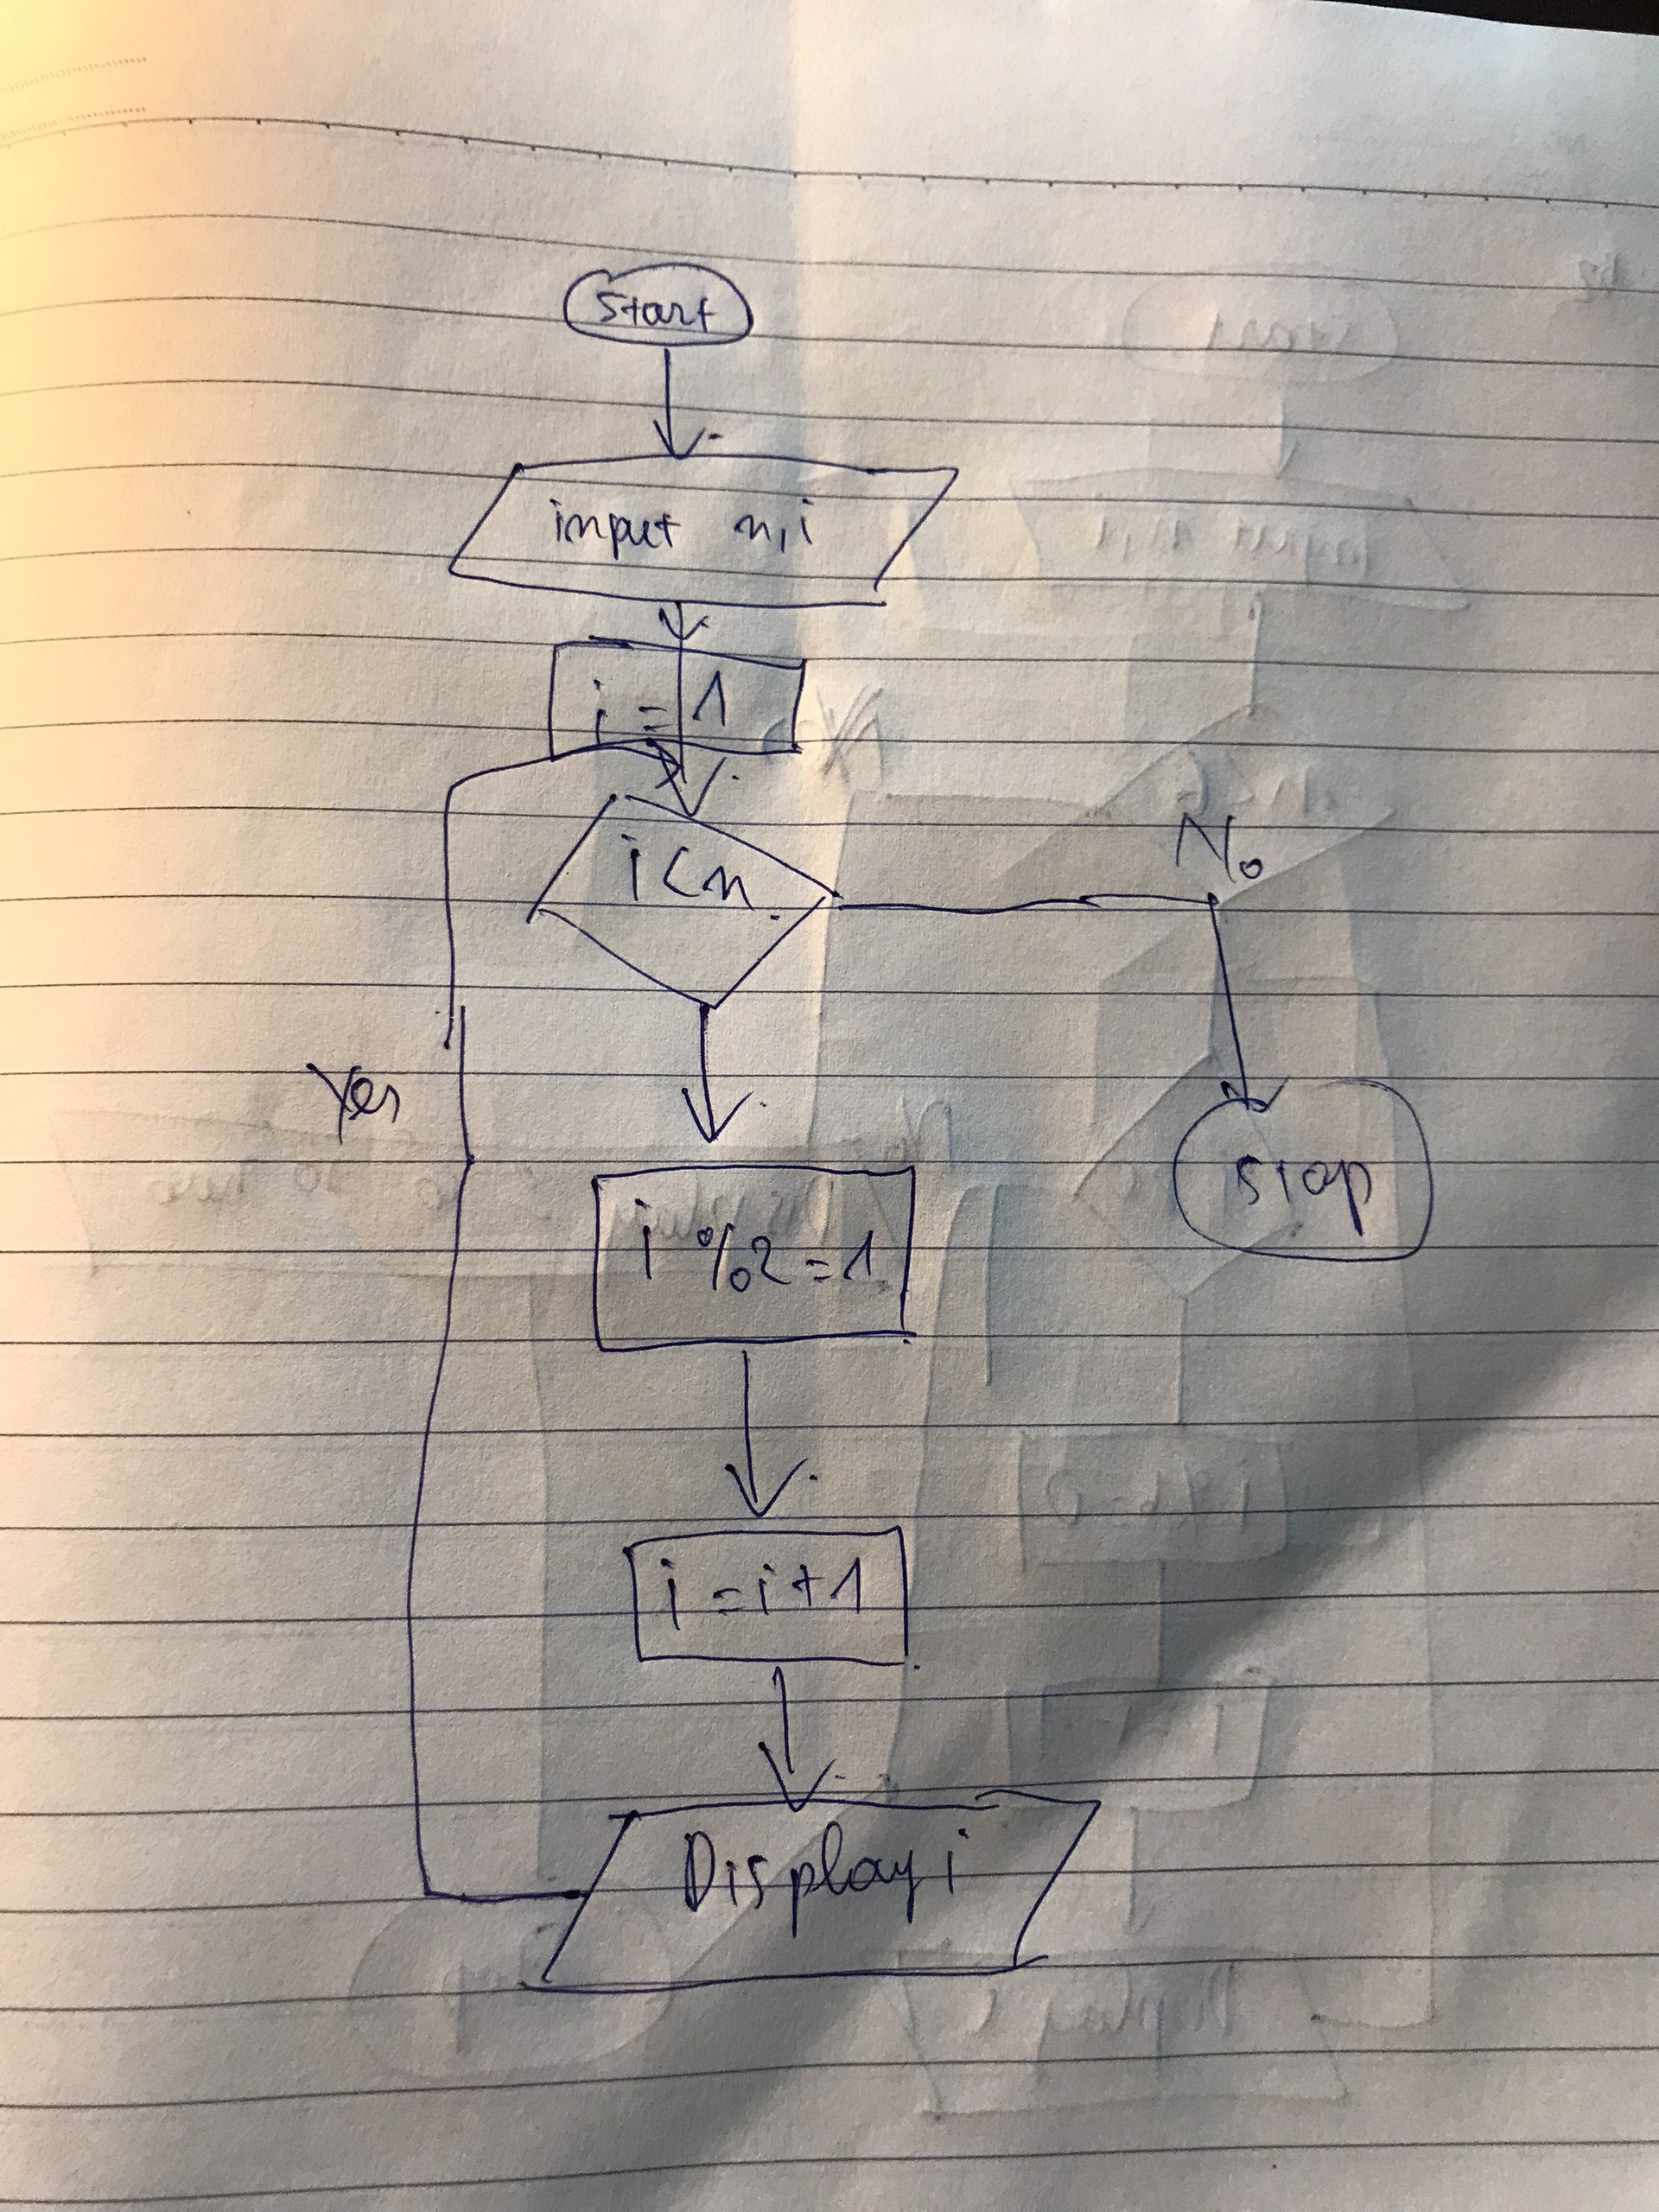 Start
input n,i
i = 1
i < n
No
Yes
Stop
i % 2 = 1
i = i + 1
Display i